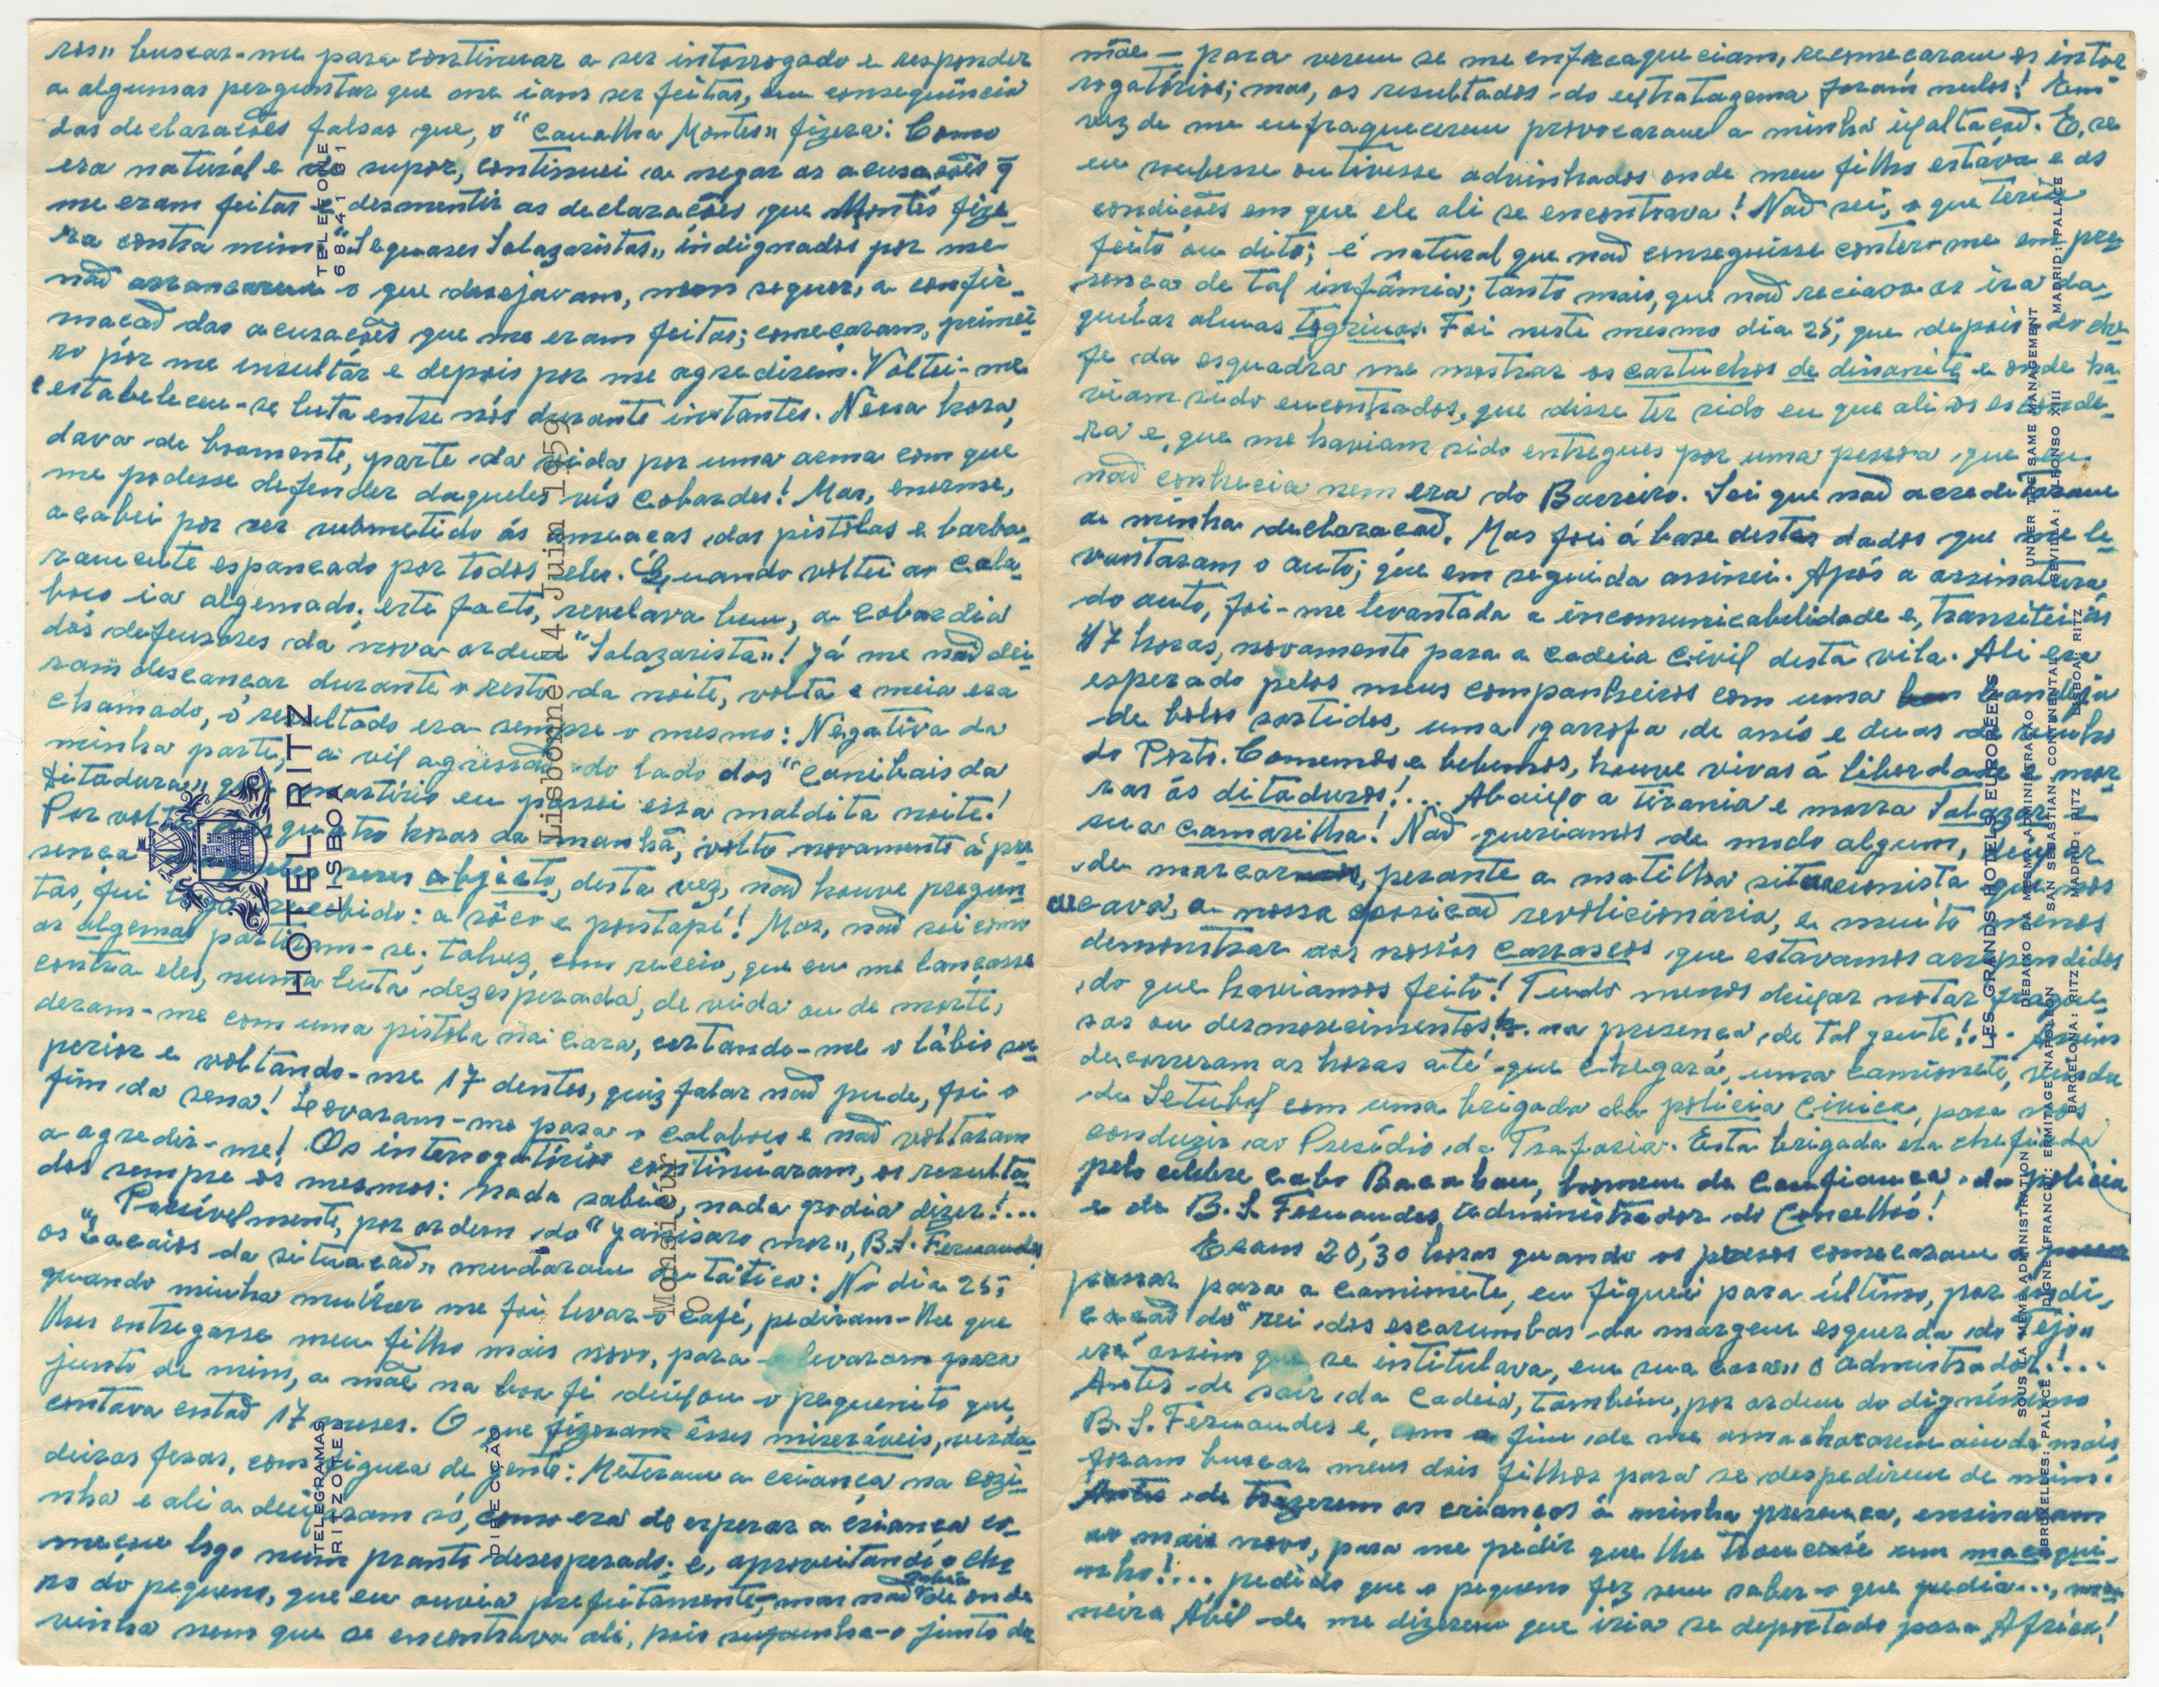 ros" buscar-me para continuar a ser intorrogado e responder
a algumas perguntas que me iam ser feitas, em consequência
das declaracões falsas que, o "canalha Montes" fizera: Como
era naturál e de supor, continuei a negar as acusacões q̃
me eram feitas e desmentir as declaracões que Montes fize-
ra contra mim. "Sequases Salazaristas" indignados por me
nad arrancarem o que desejavam, nem sequer, a confir-
macad das acusacões que me eram feitas; comecaram, primei-
ro pór me insultár e depois por me agredirem. Voltei-me
e estabeleceu-se luta entre nós durante instantes. Nessa hora,
dava de boamente, parte da vida por uma arma com que
me podesse defender daqueles vis cobardes! Mas, enerme,
acabei por ser submetido ás ameacas das pistolas e barba-
ramente espancado por todos eles. Quando voltei ao cala-
boco ia algemado; este facto, revelava bem, a cobardia
dos defensores da nova ordem "Salazarista"! Já me nad dei-
xaram descancar durante o resto da noite, volta e meia era
chamado, o resultado era sempre o mesmo: Negativa da
minha parte, a vil agressad do lado dos "canibais da
Ditadura", que martírio eu passei essa maldita noite!
Por volta das quatro horas da manhã, volto novamente á pre-
senca seres abjecto, desta vez, nad houve pregun-
tas, fui logo recebido: a sôco e pontapé! Mas, nad sei como
as algemas partiram-se; talvez, com receio, que eu me lançasse
contra eles, numa luta dezesperada, de vida ou de morte,
deram-me com uma pistola na cara, cortando-me o lábio su-
perior e voltando-me 17 dentes, quiz falar nad pude, foi o
fim da sena! Levaram-me para o calaboco e nad voltaram
a agredir-me! Os interrogatório continuáram, os resulta-
dos sempre os mesmos: nada sabia, nada podia dizer!...
Possívelmente, por ordem do "janisaro mor", B.S. Fernandes
os "Lacaios da situacad" mudaram de tática: No dia 25,
quando minha mulher me foi levar o café, pediram-lhe que
lhes entregasse meu filho mais novo, para o levaram para
junto de mim, a mãe na boa fé deixou o pequenito que,
contava entad 17 meses. O que fizeram êsses miseráveis, verda-
deiras feras, com figura de gente: Meteram a criança na cozi-
nha e ali a deixaram só, como era de esperar a criança co-
meçou logo num pranto desesperado; e, aproveitando o cho-
ro do pequeno, que eu ouvia prefeitamente, mas nad sabia de onde
vinha nem que se encontrava ali, pois supunha-o junto da
mãe — para verem se me enfraqueciam, recomecaram os intor-
rogatórios; mas, os resultados do extratagema foram nulos! Em
vez de me enfraquecerem provocaram a minha ixaltacad. E, se
eu soubesse ou tivesse advinhados onde meu filho estáva e as
condicões em que ele ali se encontrava! Nad sei, o que teria
feito ou dito; é natural que nad conseguisse conter-me em pre-
senca de tal infâmia; tanto mais, que nad reciava as ira da-
quelas almas tigrinas. Foi neste mesmo dia 25, que depois do che-
fe da esquadra me mostrar os cartuchos de dinamite e onde ha-
viam sido encontrados, que disse ter sido eu que ali os esconde-
ra e, que me haviam sido entregues por uma pessoa que eu
nad conhecia nem era do Barreiro. Sei que nad acreditaram
a minha declaracad. Mas foi á base destes dados que me le-
vantaram o auto; que em seguida assinei. Após a assinatura
do auto, foi-me levantada a incomunicabilidade e, transitei ás
17 horas, novamente para a cadeia civil desta vila. Ali era
esperado pelos meus companheiros com uma bandeja
de bolos sortidos, uma garrofa de anis e duas de vinho
do Porto. Comemos e bebemos, houve vivas á liberdade e mor-
ras ás ditaduras!... Abaixo a tirania e morra Salazar e
sua camarilha! Nad queriamos de modo algum, deixar
de marcar, perante a matilha situacionista que nos
cercava, a nossa posicad revolicionária, e muito menos
demonstrar aos nossos carrascos que estavamos arrependidos
do que haviamos feito! Tudo menos deixar notar fraque-
sas ou desmorecimentos!... na presenca de tal gente!... Assim
decorreram as horas até que chegará, uma camionete, vinda
de Setubal com uma brigada da policia civica, para nos
conduzir ao Presídio da Trafaria. Esta brigada era chefiada
pelo celebre cabo Bacabau, homem de confianca da policia
e do B.S. Fernandes, administrador do Concelho!
Eram 20,30 horas quando os presos comecaram a
passar para a camionete, eu fiquei para último, por indi-
cacad do "rei dos escarumbas da margem esquerda do Tejo"
era assim que se intitulava, em sua casa" o admistrador!...
Antes de sair da cadeia, também, por ordem do digníssimo
B.S. Fernandes e, com o fim de me amacharcarem ainda mais,
foram buscar meus dois filhos para se despedirem de mim.
Antes de trazerem as crianças á minha presenca, ensinaram
ao mais novo, para me pedir que lhe trouxesse um macaqui-
nho!..., pedido que o pequeno fez sem saber o que pedia..., ma-
neira hábil de me dizerem que iria se deportado para África!
TELEFONE
684181
Lisbonne 14 Juin 1959
HOTEL RITZ
LISBOA
Monsieur
O
TELEGRAMAS
RITZOTEL
DIRECÇÃO
LES GRANDS HOTELS EUROPÉENS
SOUS LA MÊME ADMINISTRATION DEBAIXO DA MESMA ADMINISTRAÇÃO UNDER THE SAME MANAGEMENT
BRUXELLES: PALACE DIGNE (FRANCE): ERMITAGE NAPOLÉON SAN SEBASTIAN: CONTINENTAL SEVILLA: ALFONSO XIII MADRID: PALACE
BARCELONA: RITZ MADRID: RITZ LISBOA: RITZ